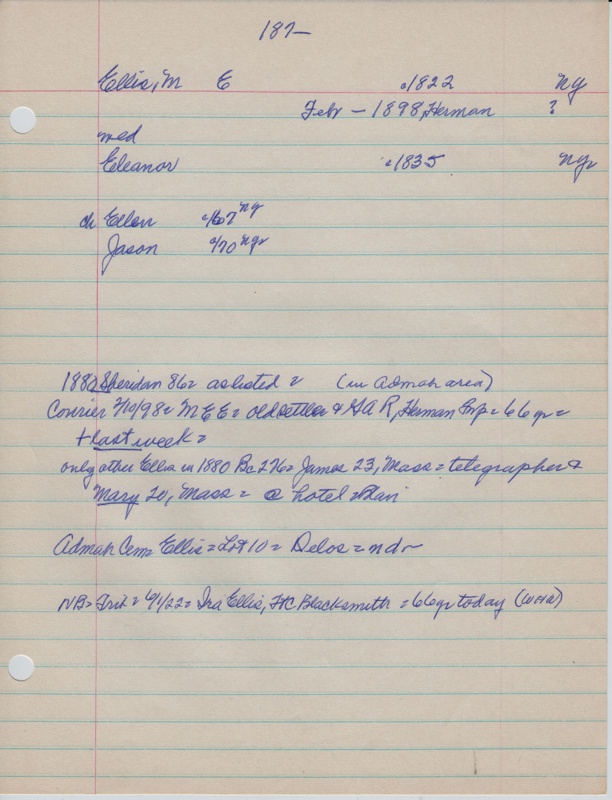 187-
Ellis, M E c1822 NY
Feb - 1898, Herman ?
med
Eleanor c1835 NY
ch Ellen c/67 NY
Jason c/70
1880 Sheridan 86= as listed = (in Admah area)
Courier 2/10/98= M E E = old settler & GAR, Herman = 66 yr =
+ last week =
only other Ellis in 1880 Bc276= James 23, Mass = telegrapher &
Mary 20, Mass = @ hotel =
Admah Cem= Ellis = Lot 10 = Delos = nd
NB= Trib = 6/1/22= Ira Ellis, Blacksmith = 66 yr today